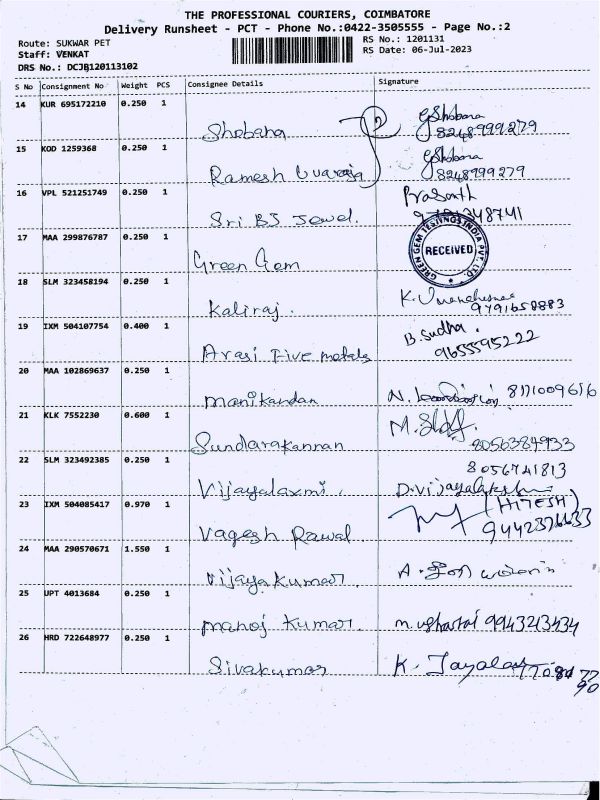 THE PROFESSIONAL COURIERS, COIMBATORE
Delivery Runsheet - PCT - Phone No.:0422-3505555 - Page No.:2
Route: SUKWAR PET RS No.: 1201131
Staff: VENKAT RS Date: 06-Jul-2023
DRS No.: DCJB120113102
S No Consignment No Weight PCS Consignee Details Signature
14 KUR 695172210 0.250 1 Shobana GShobana
8248999279
15 KOD 1259368 0.250 1 Ramesh GShobana
8248999279
16 VPL 521251749 0.250 1 Sri BJ Jewel. Prasanth
17 MAA 299876787 0.250 1 Green Gem GREEN GEM TESTINGS INDIA PVT. LTD. RECEIVED
18 SLM 323458194 0.250 1 Kaliraj. K.
9791658883
19 IXM 504107754 0.400 1 Arasi Five metals B.Sudha.
9655595222
20 MAA 102869637 0.250 1 manikandan N.
21 KLK 7552230 0.600 1 Sundarakannan M.
8056384933
22 SLM 323492385 0.250 1 Vijayalaxmi. 8056741813
D.Vijayalakshmi
23 IXM 504085417 0.970 1 Vagesh Rawal (HITESH)
24 MAA 290570671 1.550 1 Vijayakumar A.
25 UPT 4013684 0.250 1 manoj kumar 9943213434
26 HRD 722648977 0.250 1 Sivakumar K.